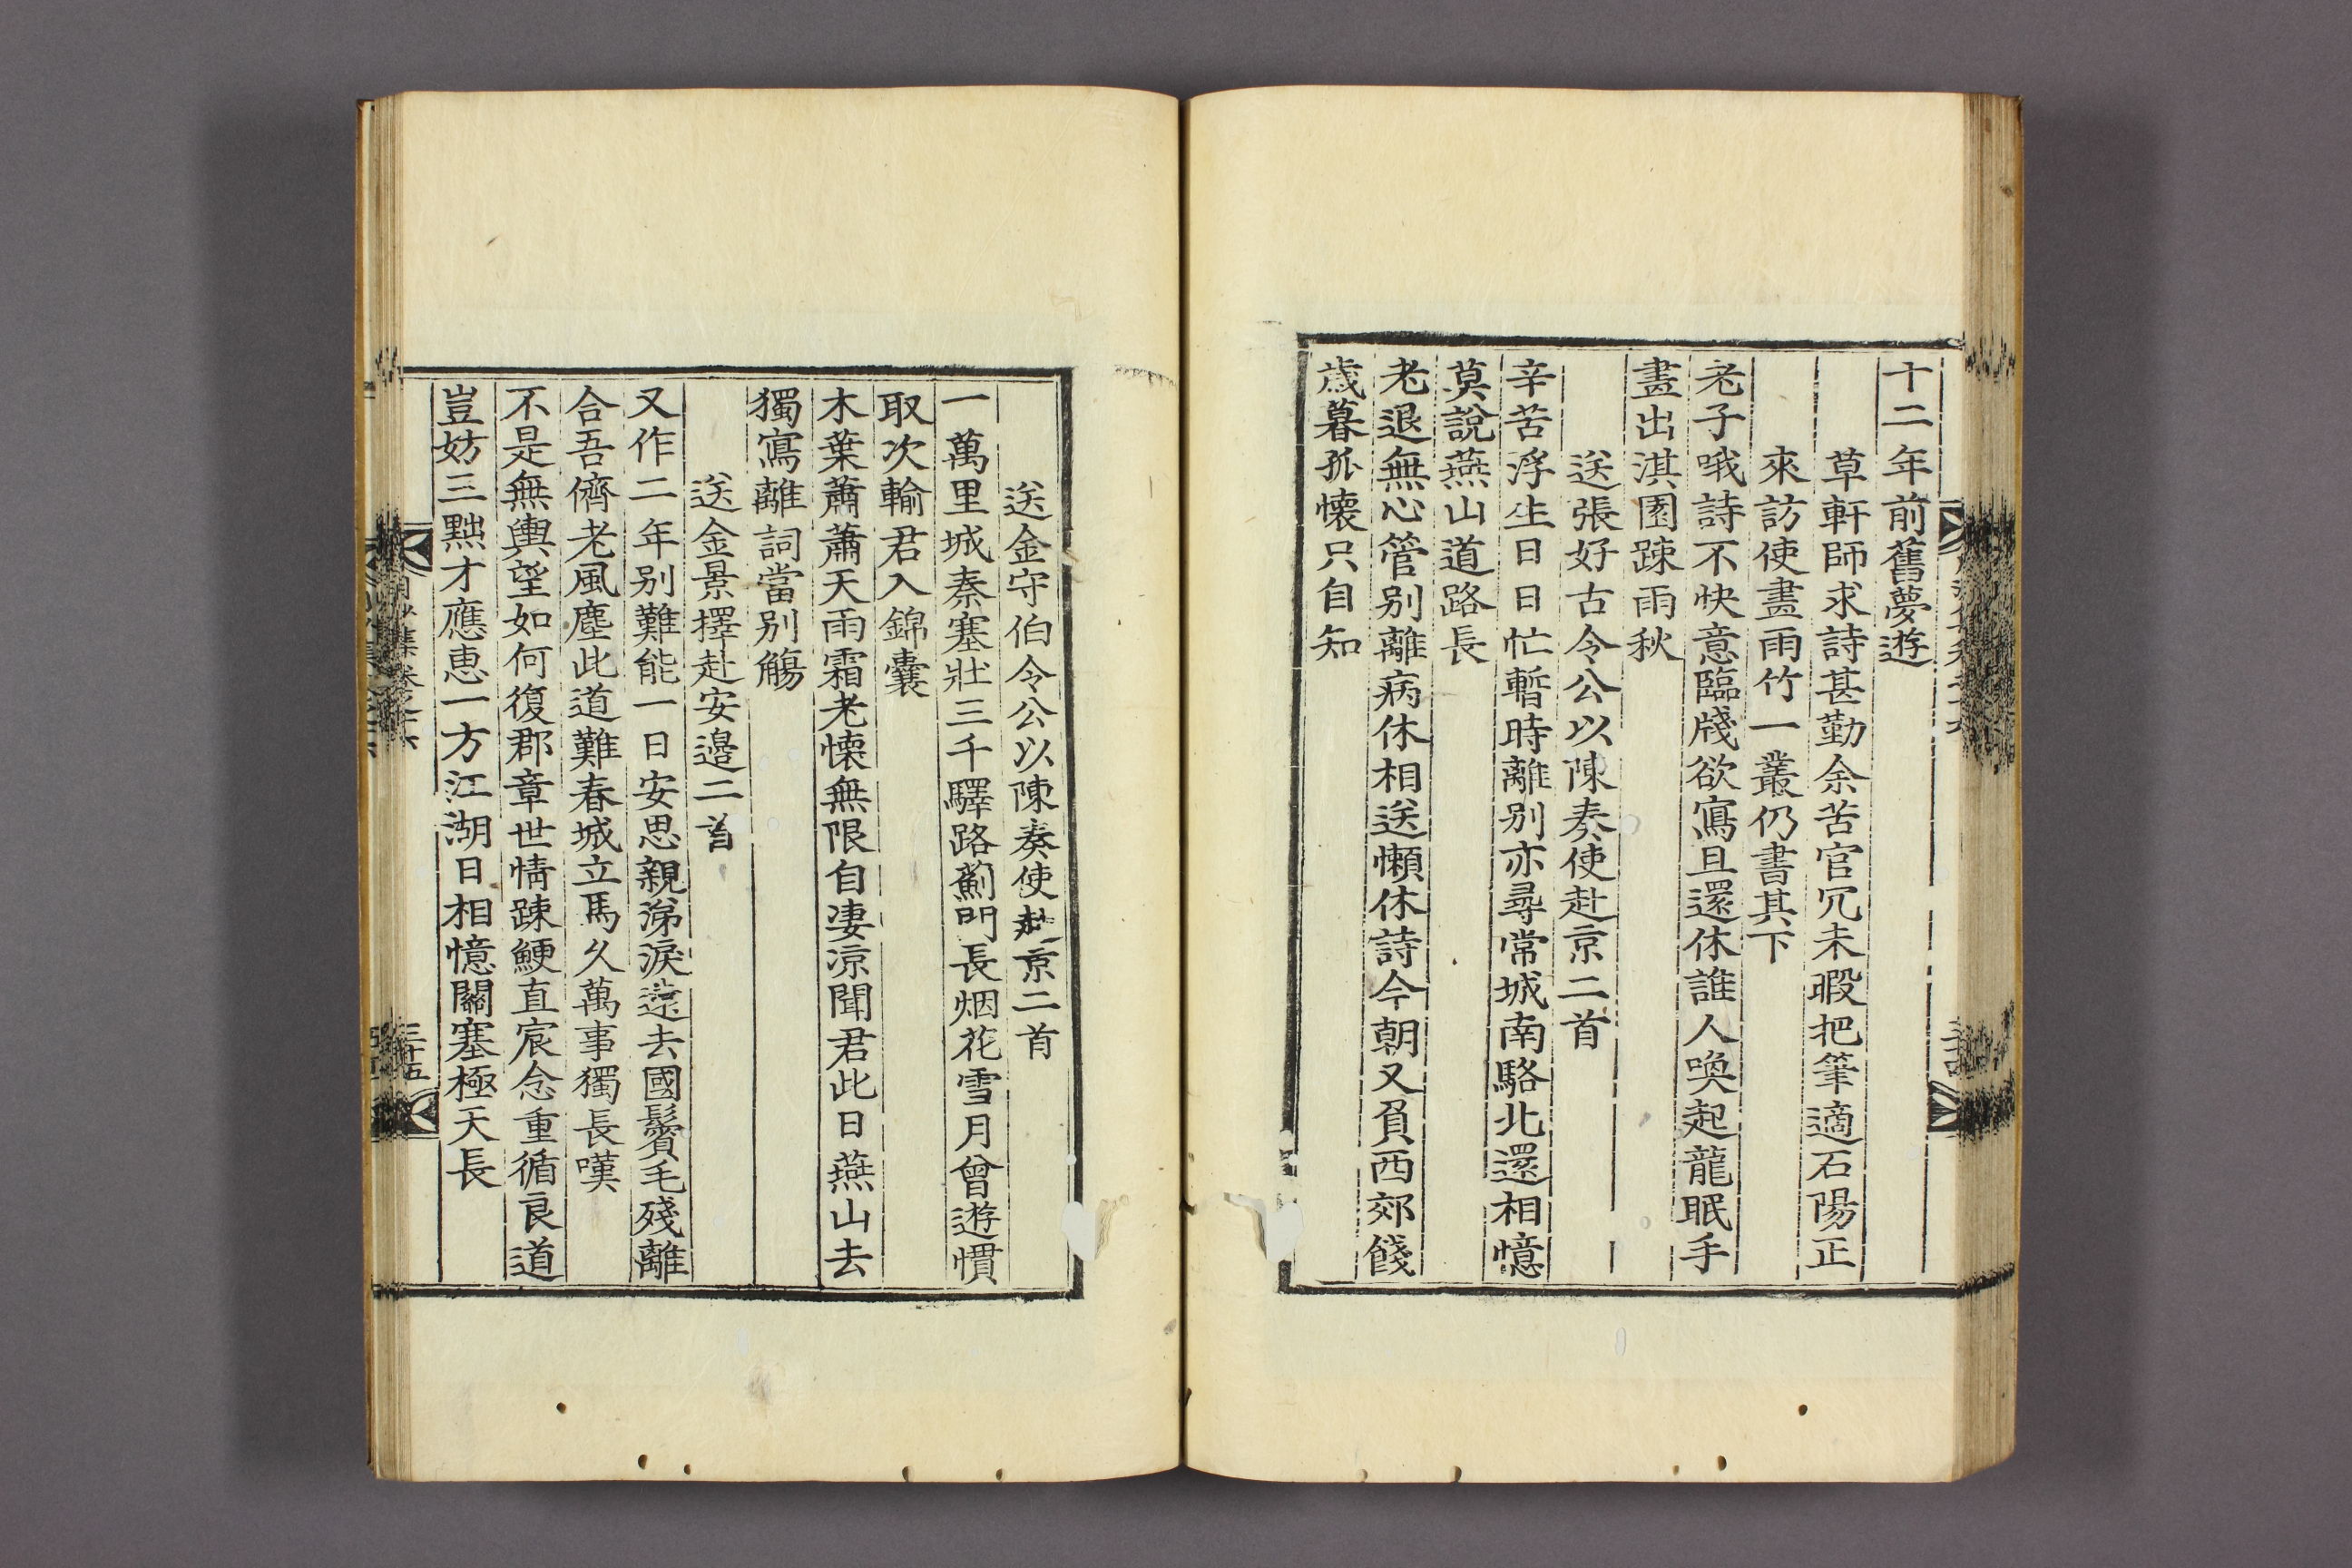 十二年前舊夢遊
草軒師求詩甚勤余苦官冗未暇把筆適石陽正
來訪使畫雨竹一叢仍書其下
老子哦詩不快意臨牋欲寫且還休誰人喚起龍眠手
畫出淇園踈雨秋
送張好古令公以陳奏使赴京二首
辛苦浮生日日忙暫時離别亦尋常城南駱北還相憶
莫說燕山道路長
老退無心管别離病休相送懶休詩今朝又負西郊餞
歲暮孤懷只自知
送金守伯令公以陳奏使赴京二首
一萬里城秦塞壯三千驛路薊門長烟花雪月曾遊慣
取次輸君入錦囊
木葉蕭蕭天雨霜老懷無限自凄凉聞君此日燕山去
獨寫離詞當别觴
送金景擇赴安邊二首
又作二年别難能一日安思親涕淚遠去國鬢毛殘離
合吾儕老風塵此道難春城立馬久萬事獨長嘆
不是無輿望如何復郡章世情踈鯁直宸念重循良道
豈妨三黜才應恵一方江湖日相憶關塞極天長
集卷之六
三十五